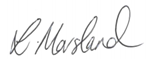 L Marsland